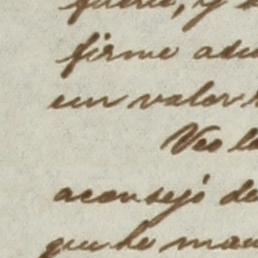 fuerte, y
firme adu
un valor
Veo la
aconsejó de
que he man